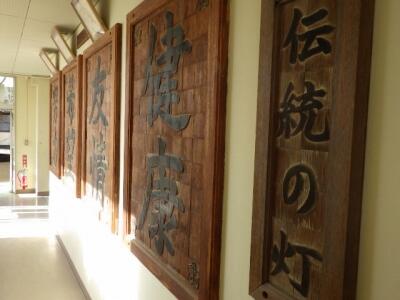 伝統の灯
健康
友情